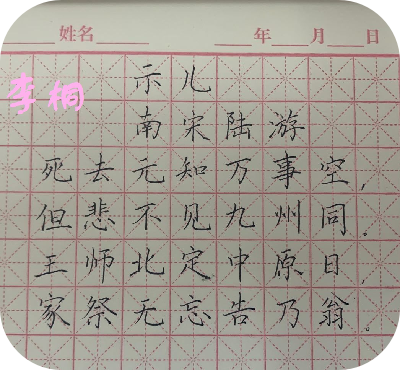 姓名 年 月 日
李桐
示儿
南宋 陆游
死去元知万事空,
但悲不见九州同。
王师北定中原日,
家祭无忘告乃翁。